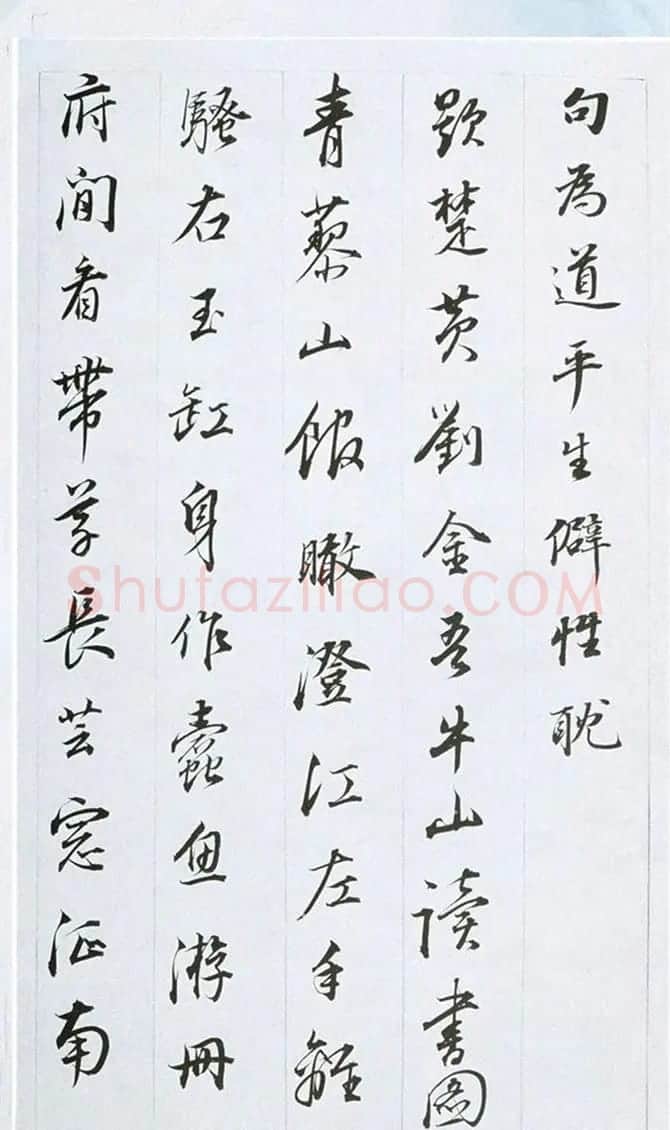 句為道平生僻性耽
題楚黄劉金吾牛山读書圖
青藜山館瞰澄江左手離
騷右玉缸身作蠹魚游冊
府閒看帶草長芸窓征南
Shufaziliao.COM